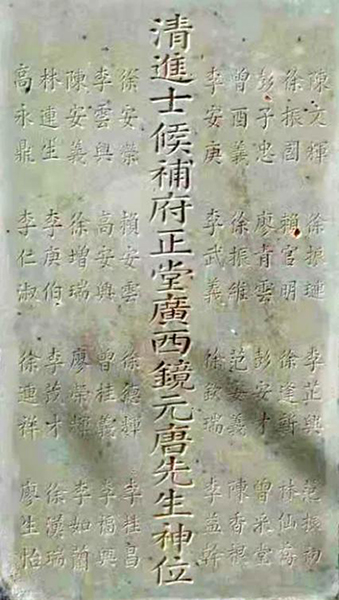 陳文輝 徐振璉 李芷興 范振初
徐振國 賴宮明 徐逢新 林仙喬
彭子忠 廖青雲 彭安才 曾采堂
曾酉義 徐振維 范安義 陳香根
李安庚 李武義 徐欽瑞 李益幹
清進士候補府正堂廣西鏡元唐先生神位
徐安榮 賴安興 徐德輝 李桂昌
李雲興 高安興 曾桂義 李福興
陳安義 徐增瑞 廖榮 李如蘭
林連生 李庚伯 李 才 徐漢瑞
高永鼎 李仁淑 徐 祥 廖生怡